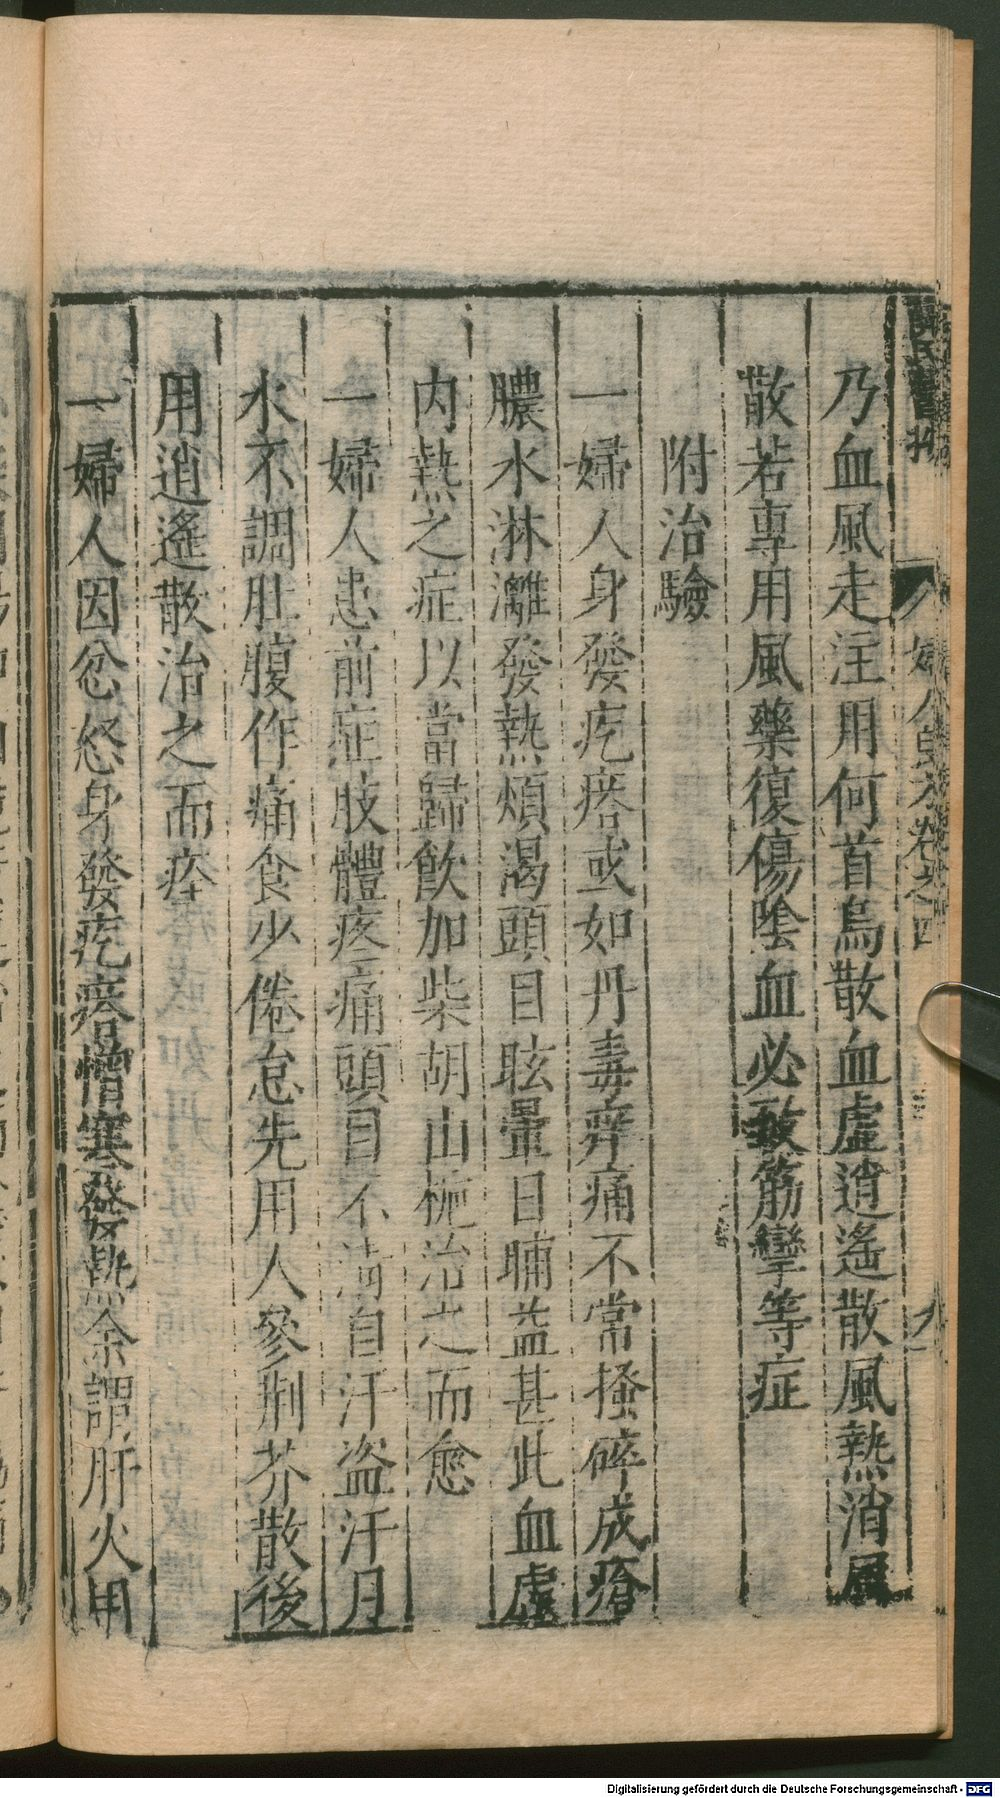 婦人良方卷之四
乃血風走注用何首烏散血虛逍遙散風熱消風
散若專用風藥復傷陰血必致筋攣等症
附治驗
一婦人身發疙瘩或如丹毒痒痛不常搔碎成瘡
膿水淋漓發熱煩渴頭目眩暈日晡益甚此血虛
內熱之症以當歸飲加柴胡山梔治之而愈
一婦人患前症肢體疼痛頭目不清自汗盜汗月
水不調肚腹作痛食少倦怠先用人參荆芥散後
用逍遙散治之而痊
一婦人因忿怒身發疙瘩憎寒發熱余謂肝火用
Digitalisierung gefördert durch die Deutsche Forschungsgemeinschaft - DFG